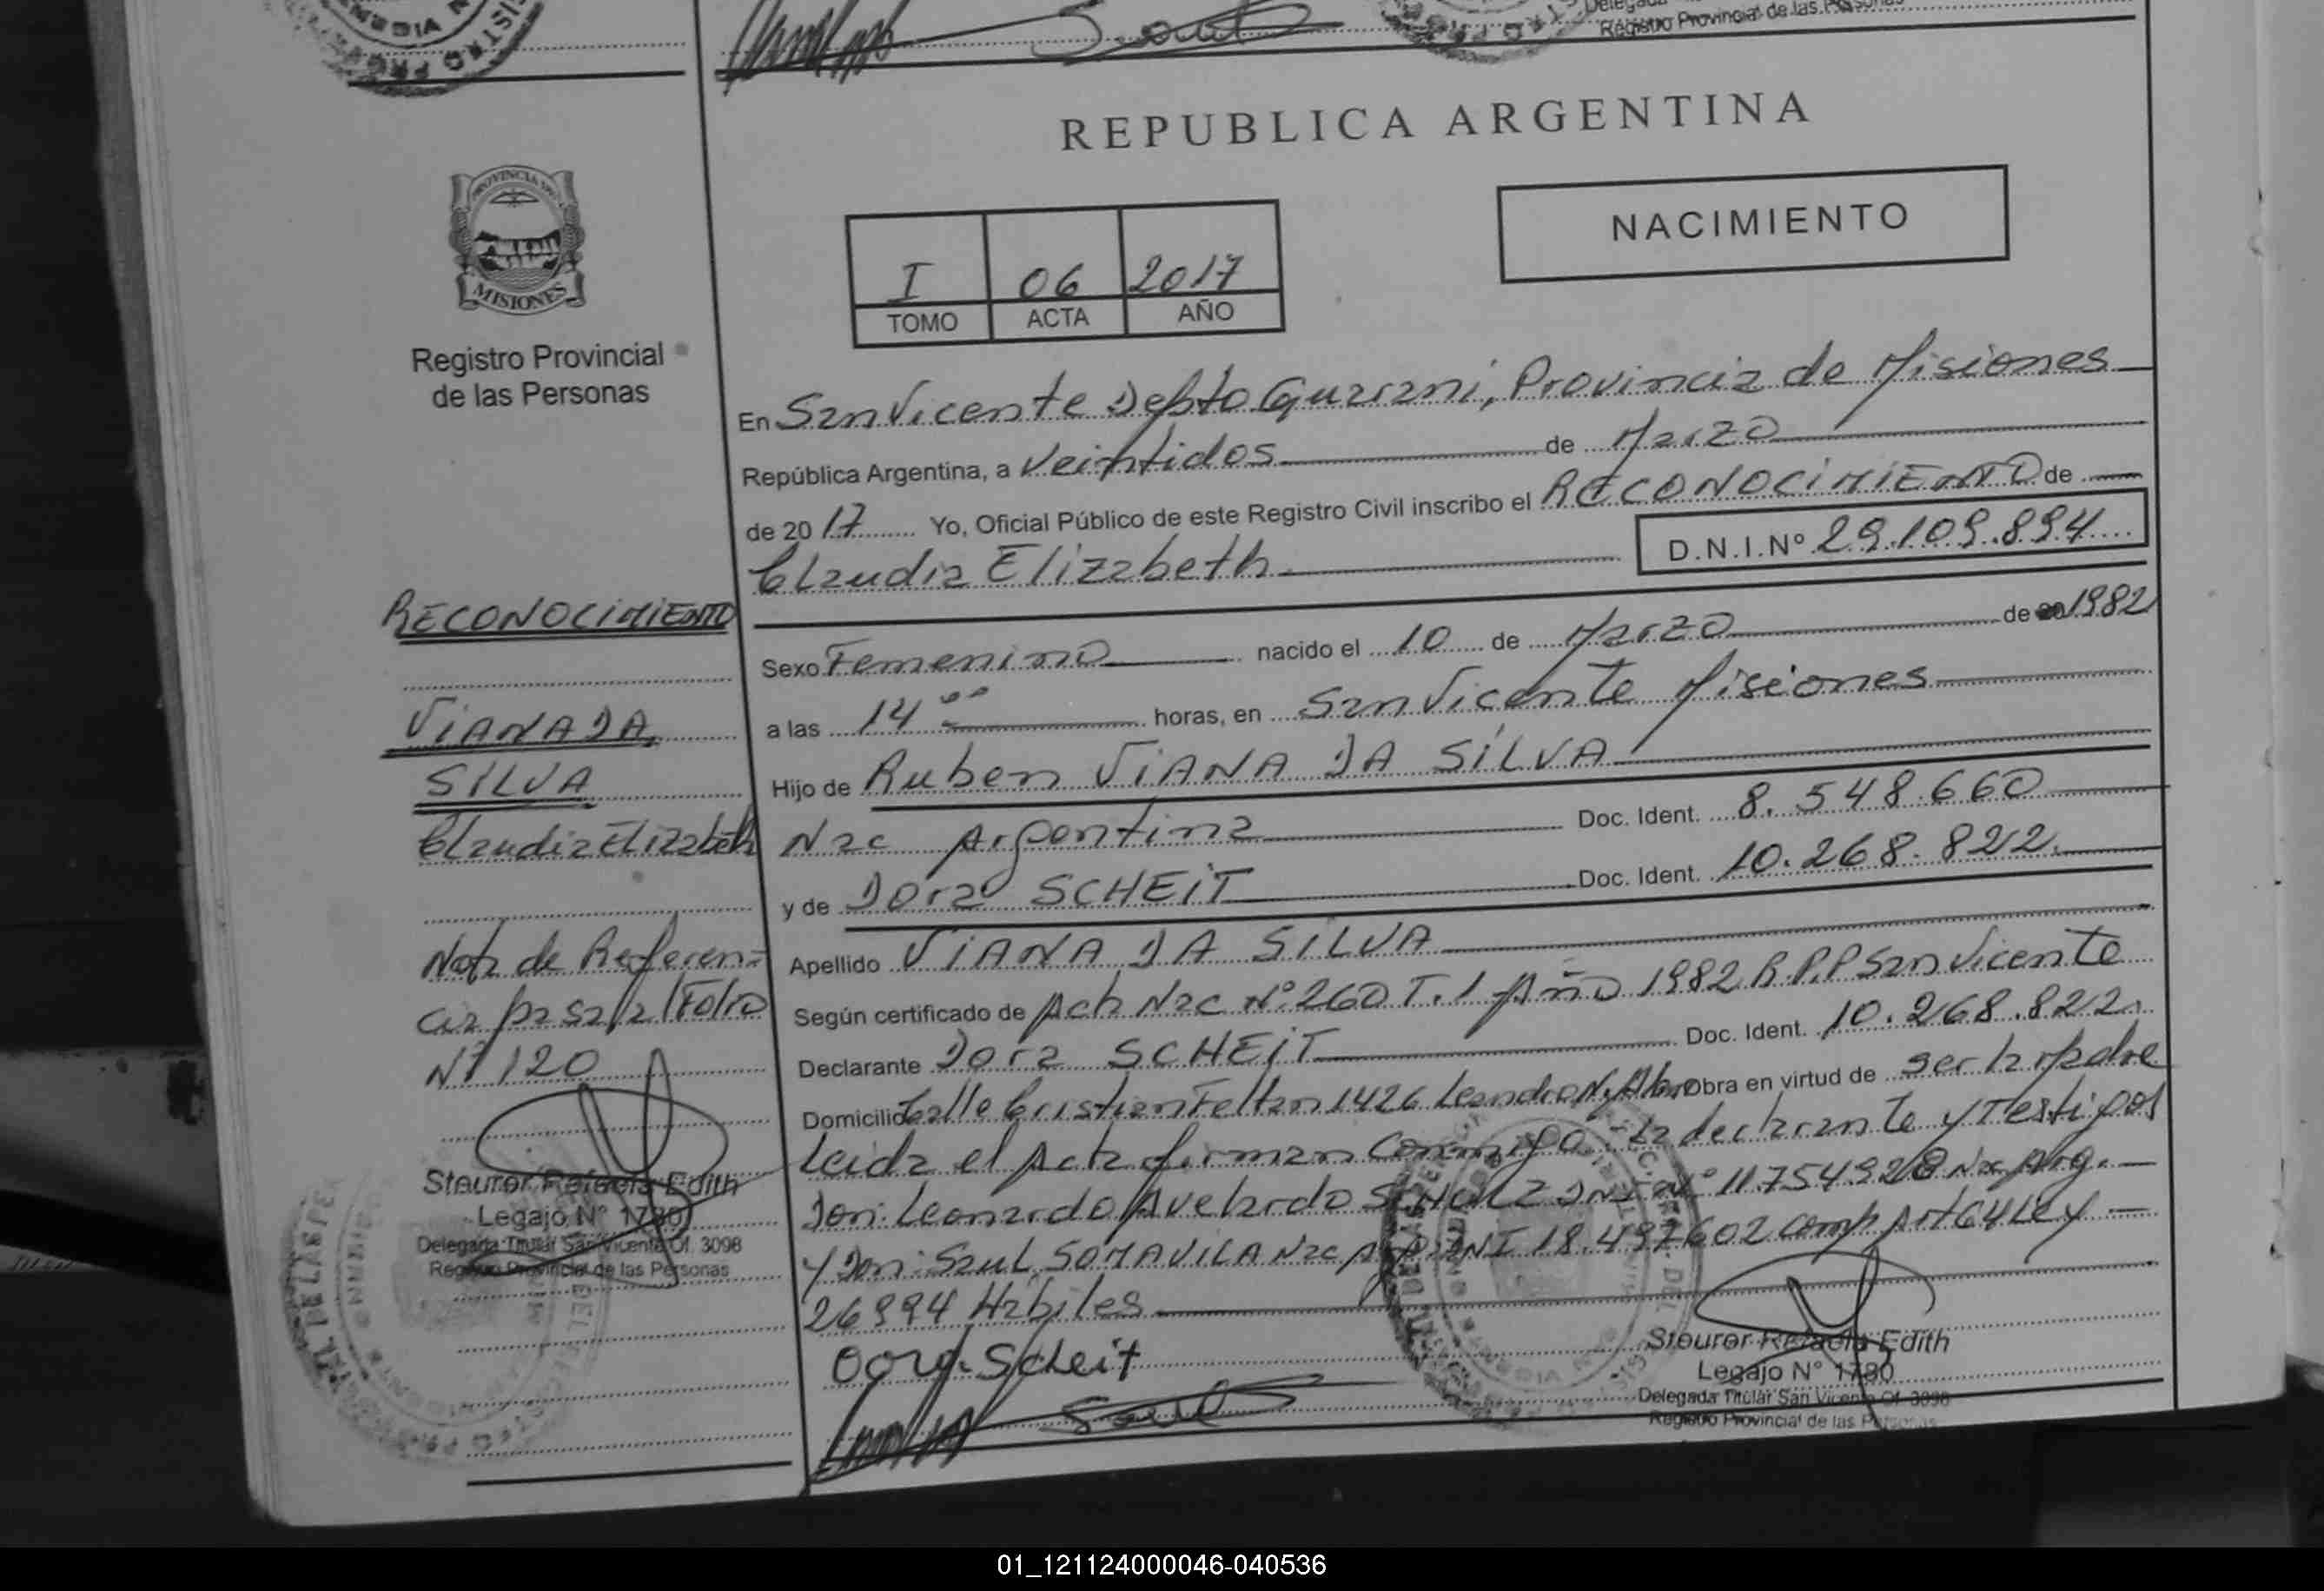 Delegada
Registro Provincial de las Personas
REPUBLICA ARGENTINA
NACIMIENTO
I 06 2017
TOMO ACTA AÑO
PROVINCIA DE
MISIONES
Registro Provincial
de las Personas
En San Vicente Depto Guarani, Provincia de Misiones
República Argentina, a Veintidos de Marzo
de 20 17 Yo, Oficial Público de este Registro Civil inscribo el RECONOCIMIENTO de
Claudia Elizabeth D.N.I.Nº 29.109.894
Sexo Femenino nacido el 10 de Marzo de 1982
a las 14 00 horas, en San Vicente Misiones
Hijo de Ruben VIANA DA SILVA
Nac Argentina Doc. Ident. 8.548.660
y de Dora SCHEIT Doc. Ident. 10.268.822.
Apellido VIANA DA SILVA
Según certificado de Acta Nac Nº 260 T. 1 Año 1982 R.P.P San Vicente
Declarante Dora SCHEIT Doc. Ident. 10.268.822.
Domicilio Calle Cristian Feltan 1426 Leandro N. Alem Obra en virtud de ser la madre
Leida el Acta firman Conmigo la declarante y Testigos
Don: Leonardo Avelardo SCHULZ DNI Nº 11.754.928 Nac Arg.
y Don: Saul SOMAVILA Nac Arg. DNI 18.497.602 comp Art 64 Ley
26994 Hábiles
Dora Scheit
Saul
Steurer Rafaela Edith
Legajo N° 1780
Delegada Titular San Vicente Of. 3098
Registro Provincial de las Personas
RECONOCIMIENTO
VIANA DA
SILVA
Claudia Elizabeth
Nota de Referen-
cia pasa al Folio
Nº 120
Steurer Rafaela Edith
Legajo N° 1780
Delegada Titular San Vicente Of. 3098
Registro Provincial de las Personas
01_121124000046-040536